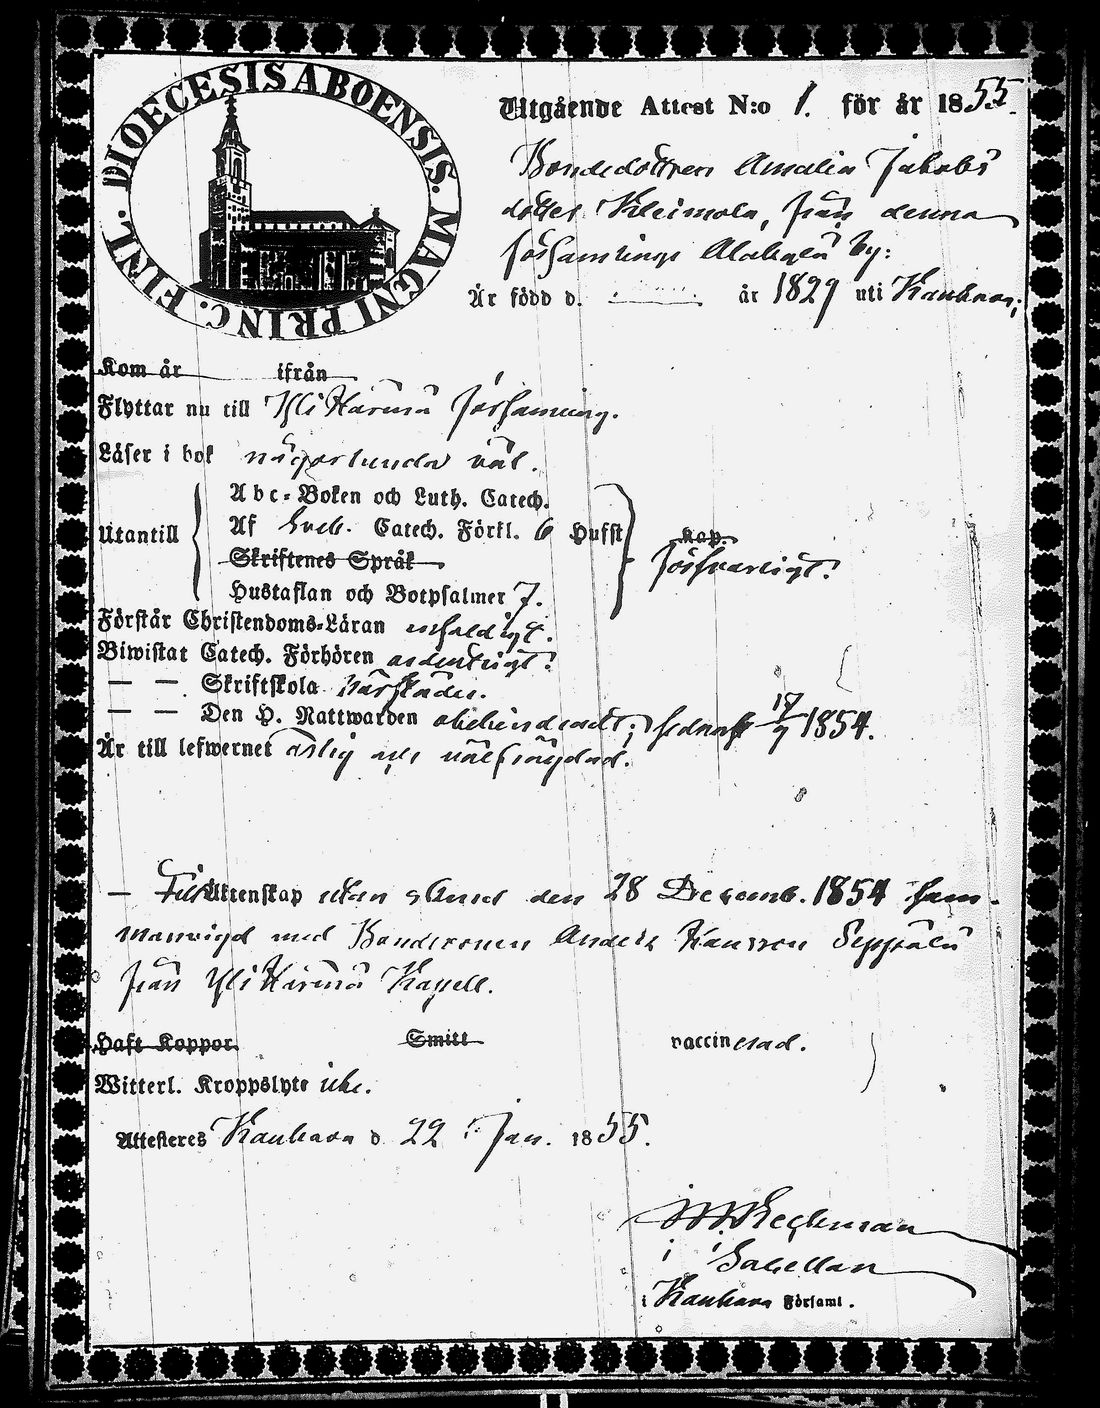 DIOECESIS ABOENSIS. MAGNI PRINC. FINL.
Utgående Attest N:o 1. för år 1855.
Bondedottren Amalia Jakobs
dotter Kleimola, från denna
församlings Alakylä by:
Är född d. år 1829 uti Kauhava;
Kom år ifrån
Flyttar nu till Yli Härmä församling.
Läser i bok någorlunda väl.
Abc-Boken och Luth. Catech.
Utantill Af Sveb. Catech. Förkl. 6 Hufst kap.
Skriftenes Språk försvarligt.
Hustaflan och Botpsalmer 7.
Förstår Christendoms-Läran enfaldigt.
Biwistat Catech. Förhören ordentligt.
— — Skriftskola härstädes.
— — Den H. Nattwarden obehindradt; sednast 17/9 1854.
Är till lefwernet ärlig och välfrägdad.
— Till Äktenskap utan den 28 Decemb. 1854 sam-
manvigd med Bondesonen Anders Hansson Seppälä
från Yli Härmä Kapell.
Haft Koppor. Smitt vaccinerad.
Witterl. Kroppslyte icke.
Attesteres Kauhava d 22 Jan. 1855.
i Kauhava Församl.